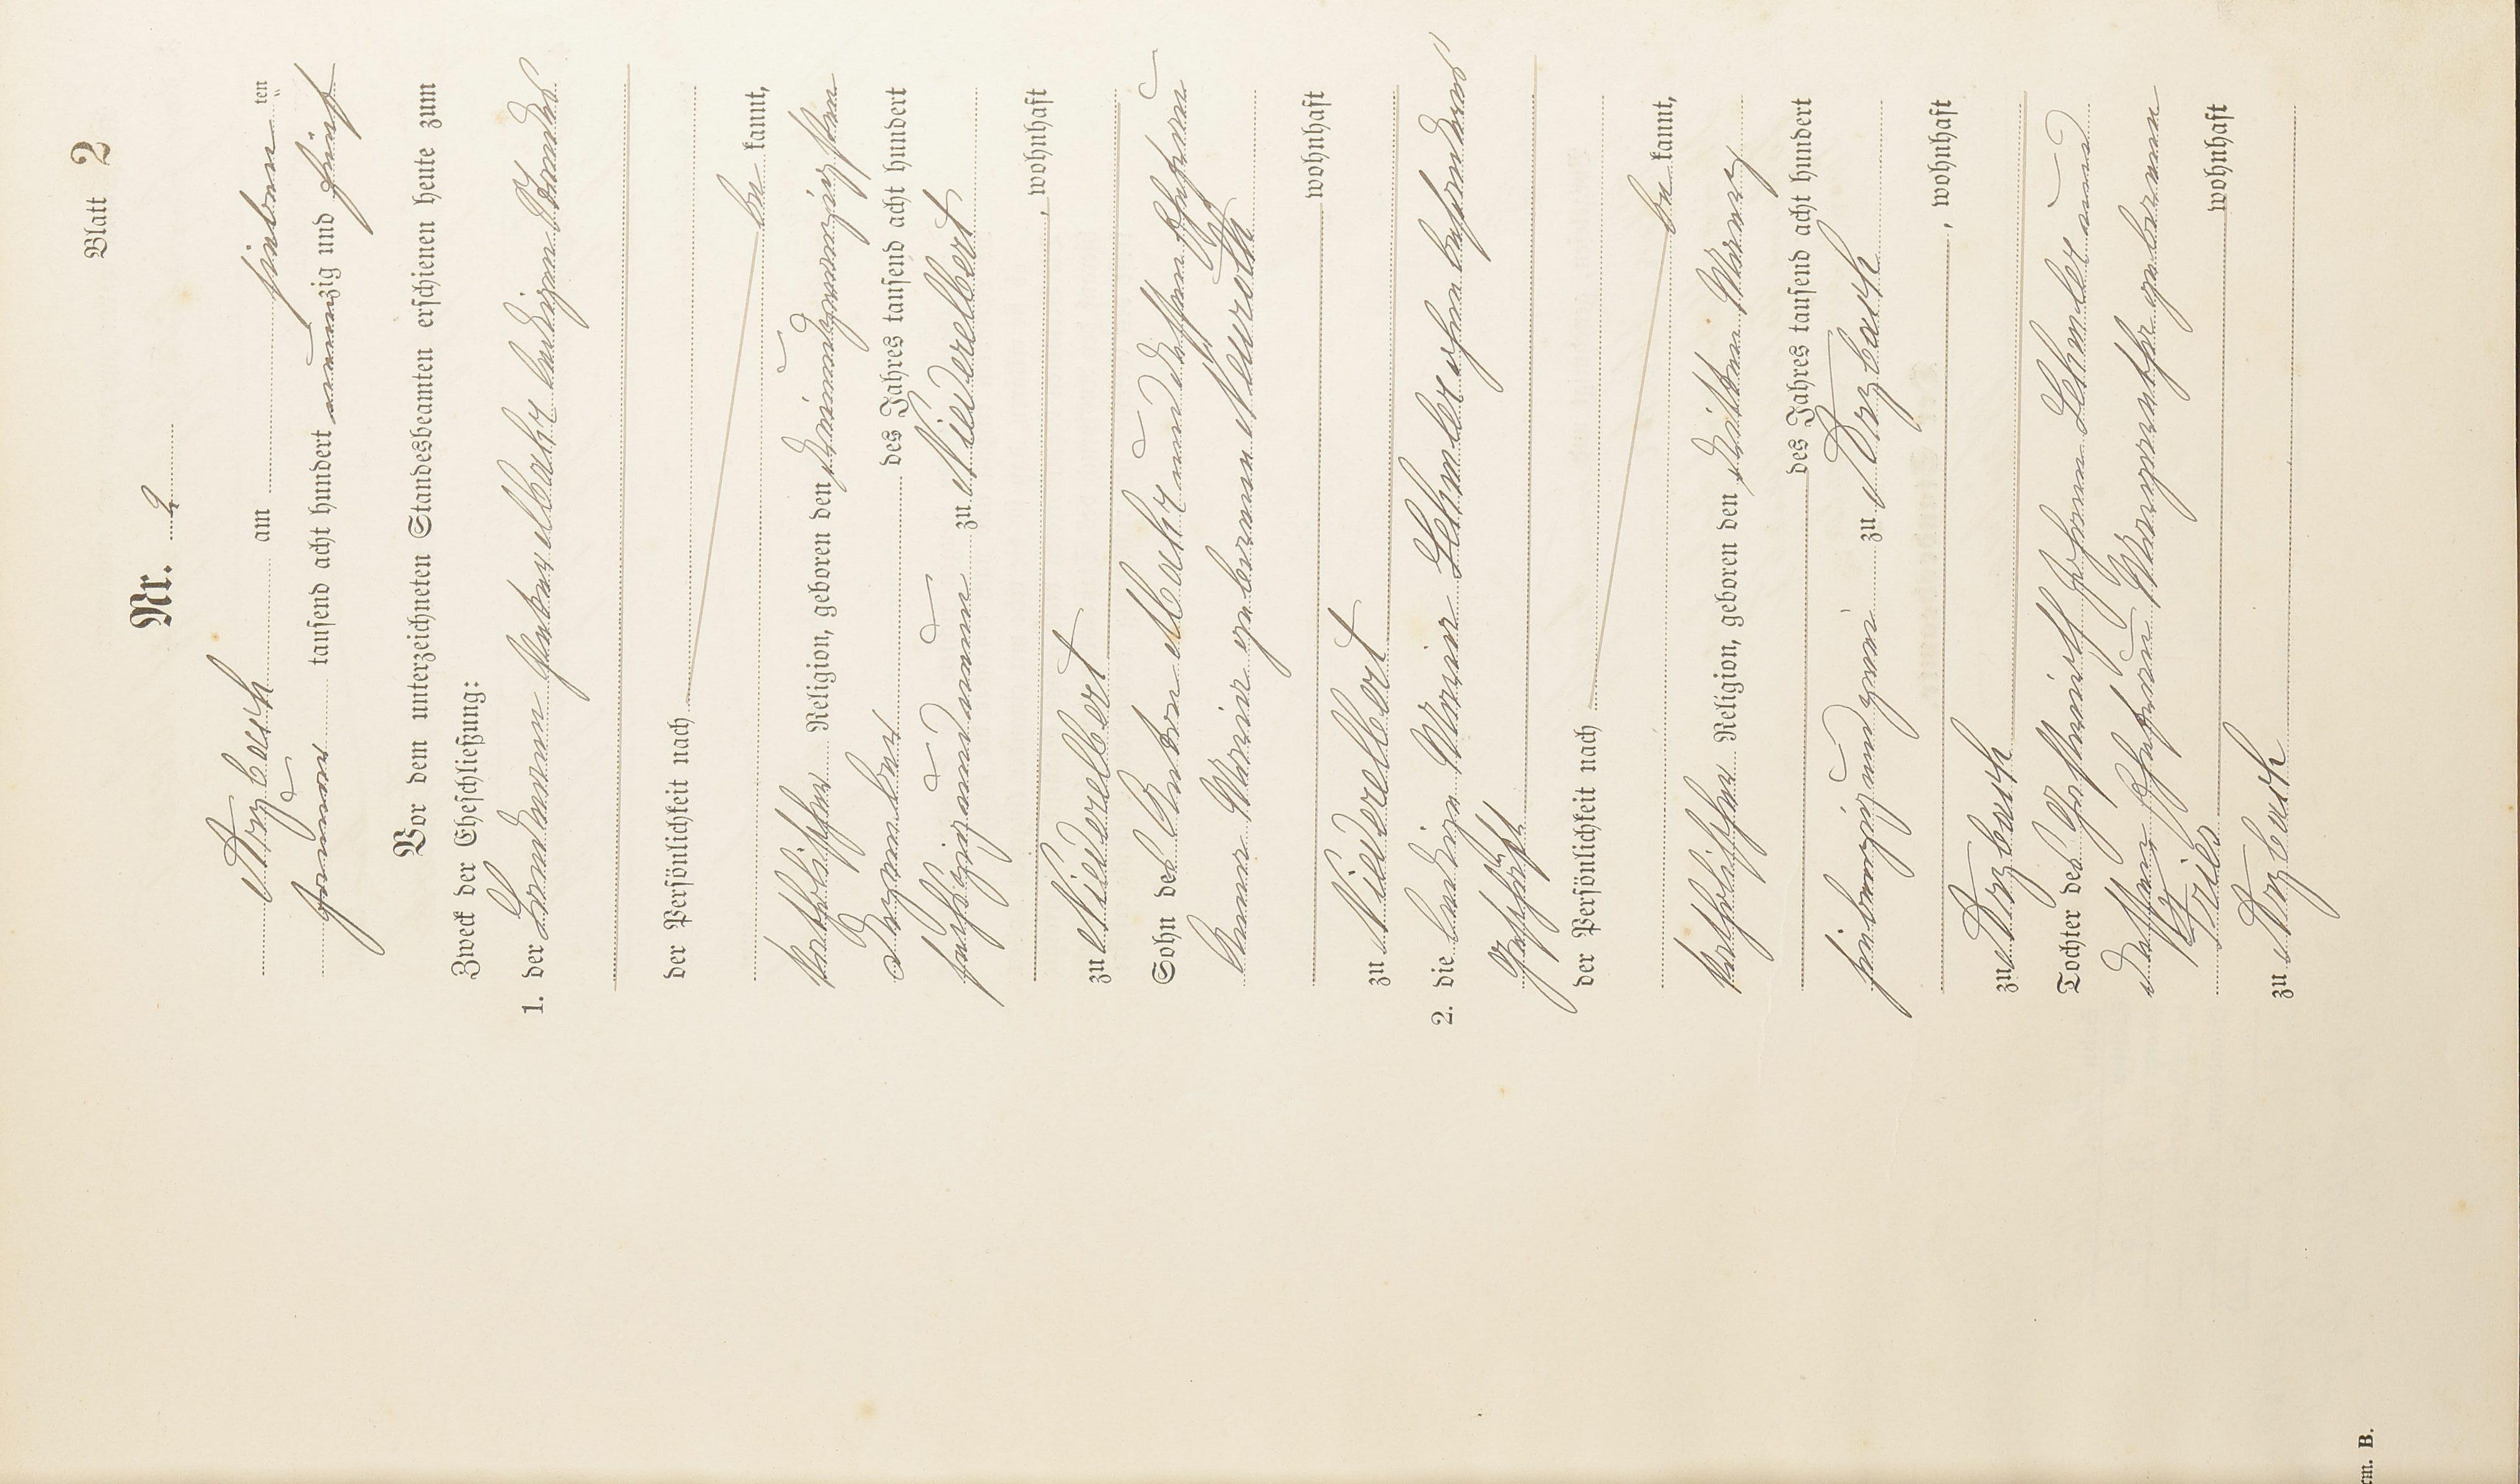 Blatt 2
Nr. 2
Arzbach am sieben ten
Januar tausend acht hundert neunzig und fünf
Vor dem unterzeichneten Standesbeamten erschienen heute zum
Zweck der Eheschließung:
1. der Landmann Mohr ledigen Standes
der Persönlichkeit nach
be kannt,
katholischer Religion, geboren den
Dezember des Jahres tausend acht hundert
sechszigundneun zu Niederelbert
, wohnhaft
zu Niederelbert
Sohn des Anton Mohr und dessen Ehefrau
Anna Maria geborenen Neuroth
wohnhaft
zu Niederelbert
2. die ledige Maria Lehmler ohne besonderes
Geschäft
der Persönlichkeit nach
be kannt,
katholischer Religion, geboren den dritten März
des Jahres tausend acht hundert
siebenzigundzwei zu Arzbach
, wohnhaft
zu Arzbach
Tochter des Gastwirth Johann Lehmler und
dessen Ehefrau Margaretha geborenen
Fries
wohnhaft
zu Arzbach
rm. B.